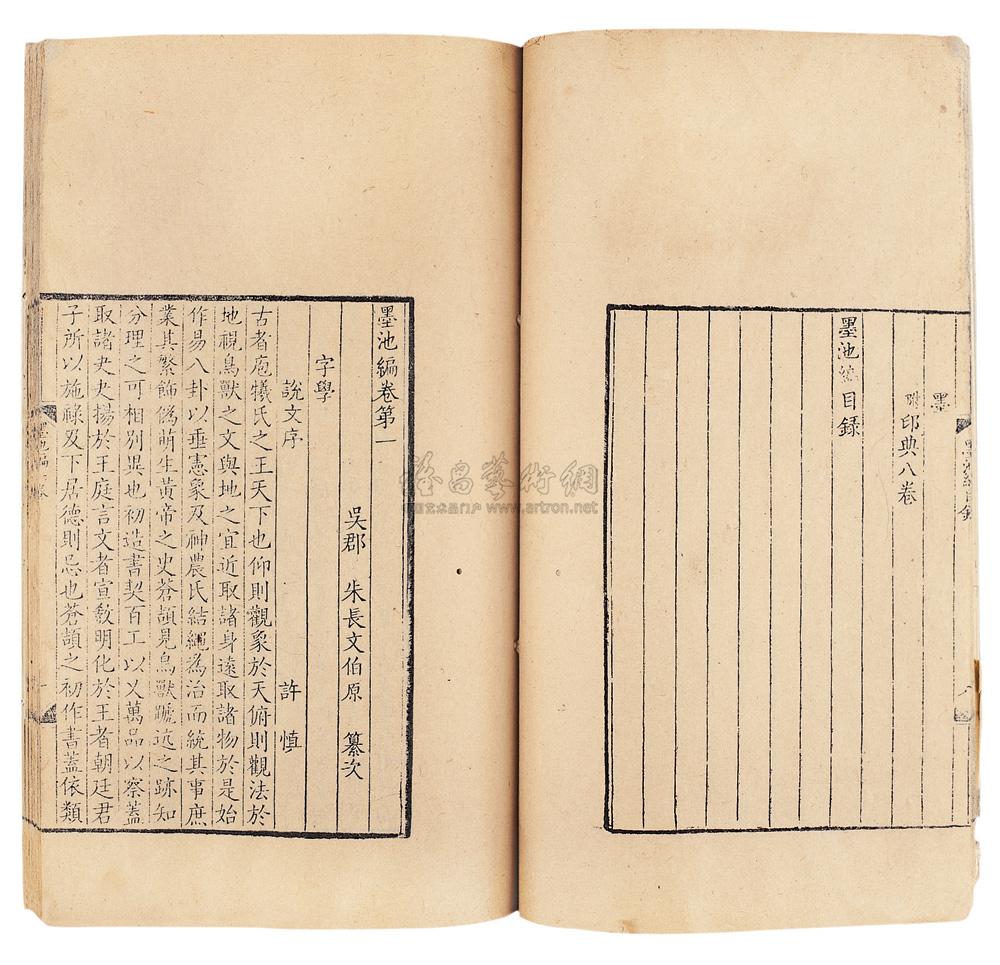 墨
附印典八卷
墨池編目録
墨池編卷第一
吳郡 朱長文伯原 纂次
字學
說文序 許慎
古者庖犧氏之王天下也仰則觀象於天俯則觀法於
地視鳥獸之文與地之宜近取諸身遠取諸物於是始
作易八卦以垂憲象及神農氏結繩為治而統其事庶
業其繁飾偽萌生黃帝之史蒼頡見鳥獸蹏迒之跡知
分理之可相別異也初造書契百工以乂萬品以察蓋
取諸夬夬揚於王庭言文者宣敎明化於王者朝廷君
子所以施祿及下居德則忌也蒼頡之初作書蓋依類
雅昌藝術網
中国艺术品门户 www.artron.net